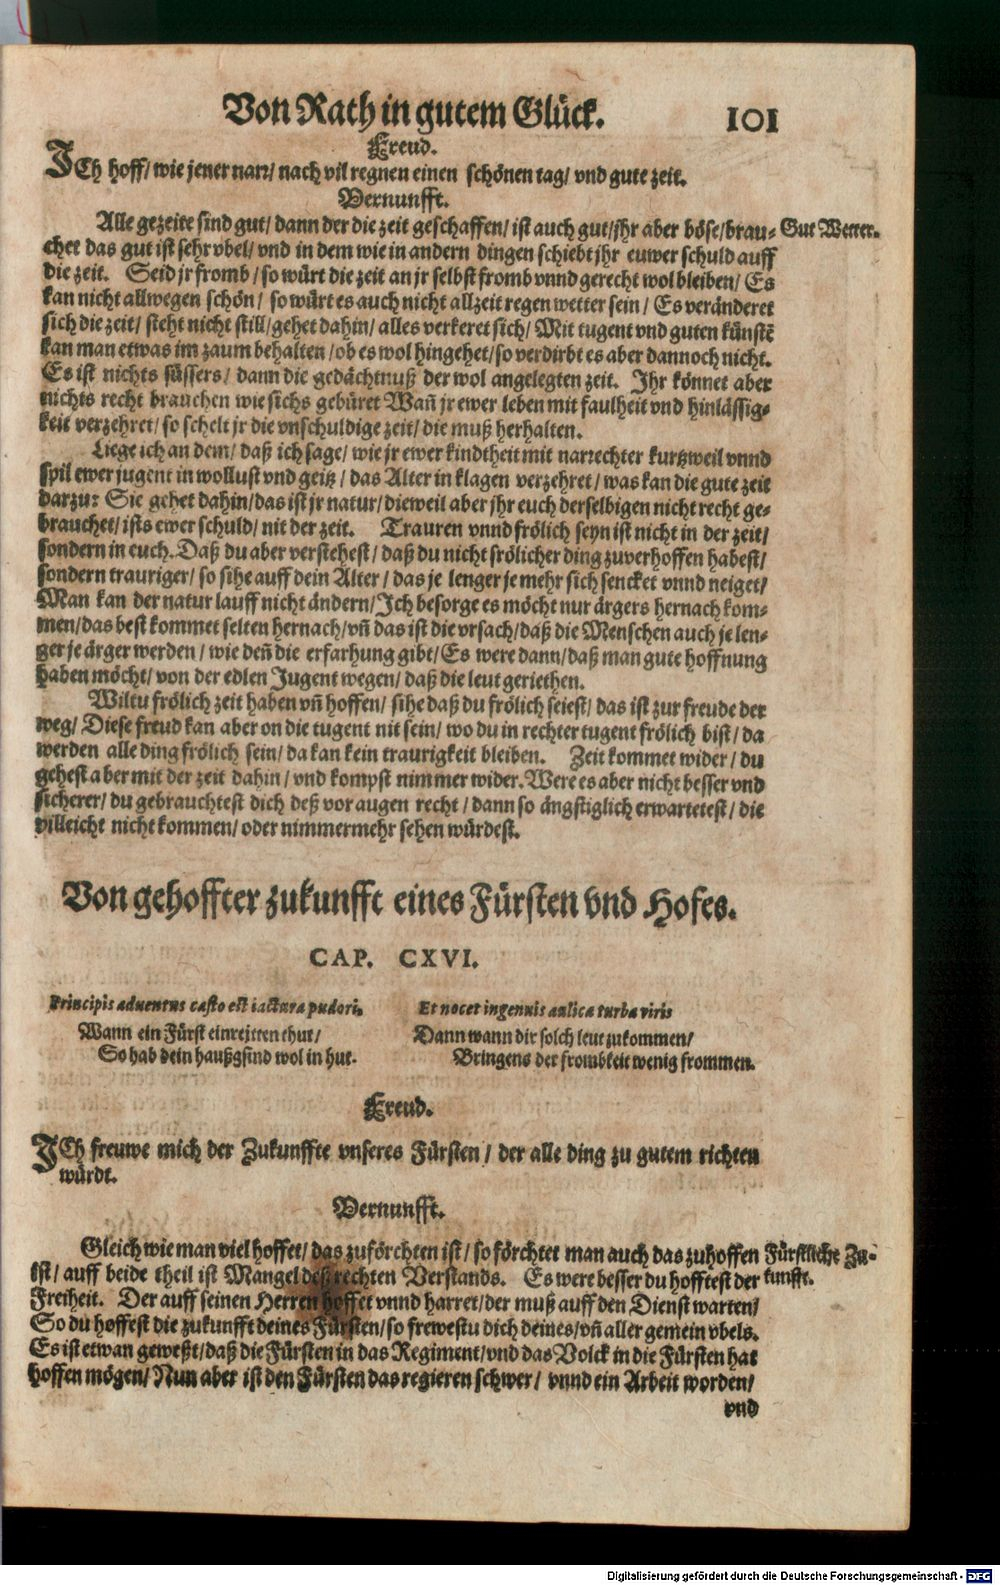 Von Rath in gutem Glück. 101
Freud.
ICh hoff/ wie jener narr/ nach vil regnen einen schönen tag/ vnd gute zeit.
Vernunfft.
Alle gezeite sind gut/ dann der die zeit geschaffen/ ist auch gut/ jhr aber böse/ brau- Gut Wetter.
chet das gut ist sehr vbel/ vnd in dem wie in andern dingen schiebt jhr euwer schuld auff
die zeit. Seid jr fromb/ so würt die zeit an jr selbst fromb vnnd gerecht wol bleiben/ Es
kan nicht allwegen schön/ so würt es auch nicht allzeit regen wetter sein/ Es veränderet
sich die zeit/ steht nicht still/ gehet dahin/ alles verkeret sich/ Mit tugent vnd guten künstē
kan man etwas im zaum behalten/ ob es wol hingehet/ so verdirbt es aber dannoch nicht.
Es ist nichts süssers/ dann die gedächtnuß der wol angelegten zeit. Ihr könnet aber
nichts recht brauchen wie sichs gebüret Wañ jr ewer leben mit faulheit vnd hinlässig-
keit verzehret/ so schelt jr die vnschuldige zeit/ die muß herhalten.
Liege ich an dem/ daß ich sage/ wie jr ewer kindtheit mit narrechter kurtzweil vnnd
spil ewer jugent in wollust vnd geitz/ das Alter in klagen verzehret/ was kan die gute zeit
darzu: Sie gehet dahin/ das ist jr natur/ dieweil aber jhr euch derselbigen nicht recht ge-
brauchet/ ists ewer schuld/ nit der zeit. Trauren vnnd frölich seyn ist nicht in der zeit/
sondern in euch. Daß du aber verstehest/ daß du nicht frölicher ding zuverhoffen habest/
sondern trauriger/ so sihe auff dein Alter/ das je lenger je mehr sich sencket vnnd neiget/
Man kan der natur lauff nicht ändern/ Ich besorge es möcht nur ärgers hernach kom-
men/ das best kommet selten hernach/ vñ das ist die vrsach/ daß die Menschen auch je len-
ger je ärger werden/ wie deñ die erfarhung gibt/ Es were dann/ daß man gute hoffnung
haben möcht/ von der edlen Jugent wegen/ daß die leut geriethen.
Wiltu frölich zeit haben vñ hoffen/ sihe daß du frölich seiest/ das ist zur freude der
weg/ Diese freud kan aber on die tugent nit sein/ wo du in rechter tugent frölich bist/ da
werden alle ding frölich sein/ da kan kein traurigkeit bleiben. Zeit kommet wider/ du
gehest aber mit der zeit dahin/ vnd kompst nimmer wider. Were es aber nicht besser vnd
sicherer/ du gebrauchtest dich deß vor augen recht/ dann so ängstiglich erwartetest/ die
villeicht nicht kommen/ oder nimmermehr sehen würdest.
Von gehoffter zukunfft eines Fürsten vnd Hofes.
CAP. CXVI.
Principis aduentus casto est iactura pudori,
Wann ein Fürst einreitten thut/
So hab dein haußgsind wol in hut.
Et nocet ingenuis aulica turba viris
Dann wann dir solch leut zukommen/
Bringens der frombkeit wenig frommen.
Freud.
ICh freuwe mich der Zukunffte vnseres Fürsten/ der alle ding zu gutem richten
würdt.
Vernunfft.
Gleich wie man viel hoffet/ das zuförchten ist/ so förchtet man auch das zuhoffen Fürstliche Zu-
ist/ auff beide theil ist Mangel deß rechten Verstands. Es were besser du hofftest der kunfft.
Freiheit. Der auff seinen Herren hoffet vnnd harret/ der muß auff den Dienst warten/
So du hoffest die zukunfft deines Fürsten/ so frewestu dich deines/ vñ aller gemein vbels.
Es ist etwan gewesst/ daß die Fürsten in das Regiment/ vnd das Volck in die Fürsten hat
hoffen mögen/ Nun aber ist den Fürsten das regieren schwer/ vnnd ein Arbeit worden/
vnd
Digitalisierung gefördert durch die Deutsche Forschungsgemeinschaft - DFG